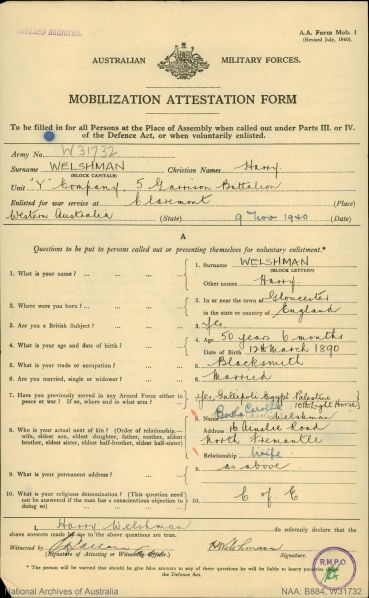 ENTERED REGISTER.
A.A. Form Mob. 1
(Revised July, 1940).
AUSTRALIAN MILITARY FORCES.
MOBILIZATION ATTESTATION FORM
To be filled in for all Persons at the Place of Assembly when called out under Parts III. or IV.
of the Defence Act, or when voluntarily enlisted.
Army No. W31732
Surname WELSHMAN Christian Names Harry
(BLOCK CAPITALS)
Unit "Y" Company, 5 Garrison Battalion
Enlisted for war service at Claremont (Place)
Western Australia (State) 9 Nov 1940 (Date)
A
Questions to be put to persons called out or presenting themselves for voluntary enlistment.*
1. What is your name? ... 1. Surname WELSHMAN
(BLOCK LETTERS)
Other names Harry
2. Where were you born? ... 2. In or near the town of Gloucester
in the state or country of England
3. Are you a British Subject? ... 3. Yes
4. What is your age and date of birth? ... 4. Age 50 years 6 months
Date of Birth 12th March 1890
5. What is your trade or occupation? ... 5. Blacksmith
6. Are you married, single or widower? ... 6. Married
7. Have you previously served in any Armed Force either in
peace or war? If so, where and in what arm? ... 7. Yes. Gallepoli Egypt Palestine
10th Light Horse
8. Who is your actual next of kin? (Order of relationship—
wife, eldest son, eldest daughter, father, mother, eldest
brother, eldest sister, eldest half-brother, eldest half-sister)
8. Name Welshman
Address 16 Ainslie Road
North Fremantle
Relationship Wife
9. What is your permanent address? ... 9. as above
10. What is your religious denomination? (This question need
not be answered if the man has a conscientious objection to
doing so) ... 10. C of E
I, Harry Welshman do solemnly declare that the
above answers made by me to the above questions are true.
Witnessed by
Signature of Attesting or Witnessing Officer.
H Welshman
Signature.
R.M.P.O.
* The person will be warned that should he give false answers to any of these questions he will be liable to heavy penalties under
the Defence Act.
National Archives of Australia
NAA: B884, W31732